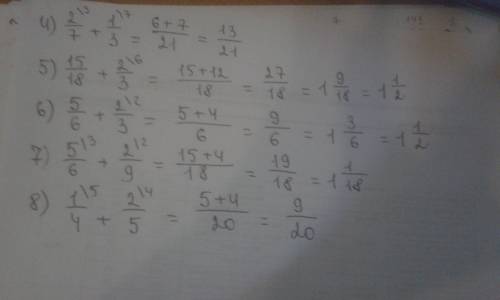 4) 2\3/7 + 1\7/3 = 6+7/21 = 13/21
5) 15/18 + 2\6/3 = 15+12/18 = 27/18 = 1 9/18 = 1 1/2
6) 5/6 + 2\2/3 = 5+4/6 = 9/6 = 1 3/6 = 1 1/2
7) 5\3/6 + 2\2/9 = 15+4/18 = 19/18 = 1 1/18
8) 1\5/4 + 2\4/5 = 5+4/20 = 9/20